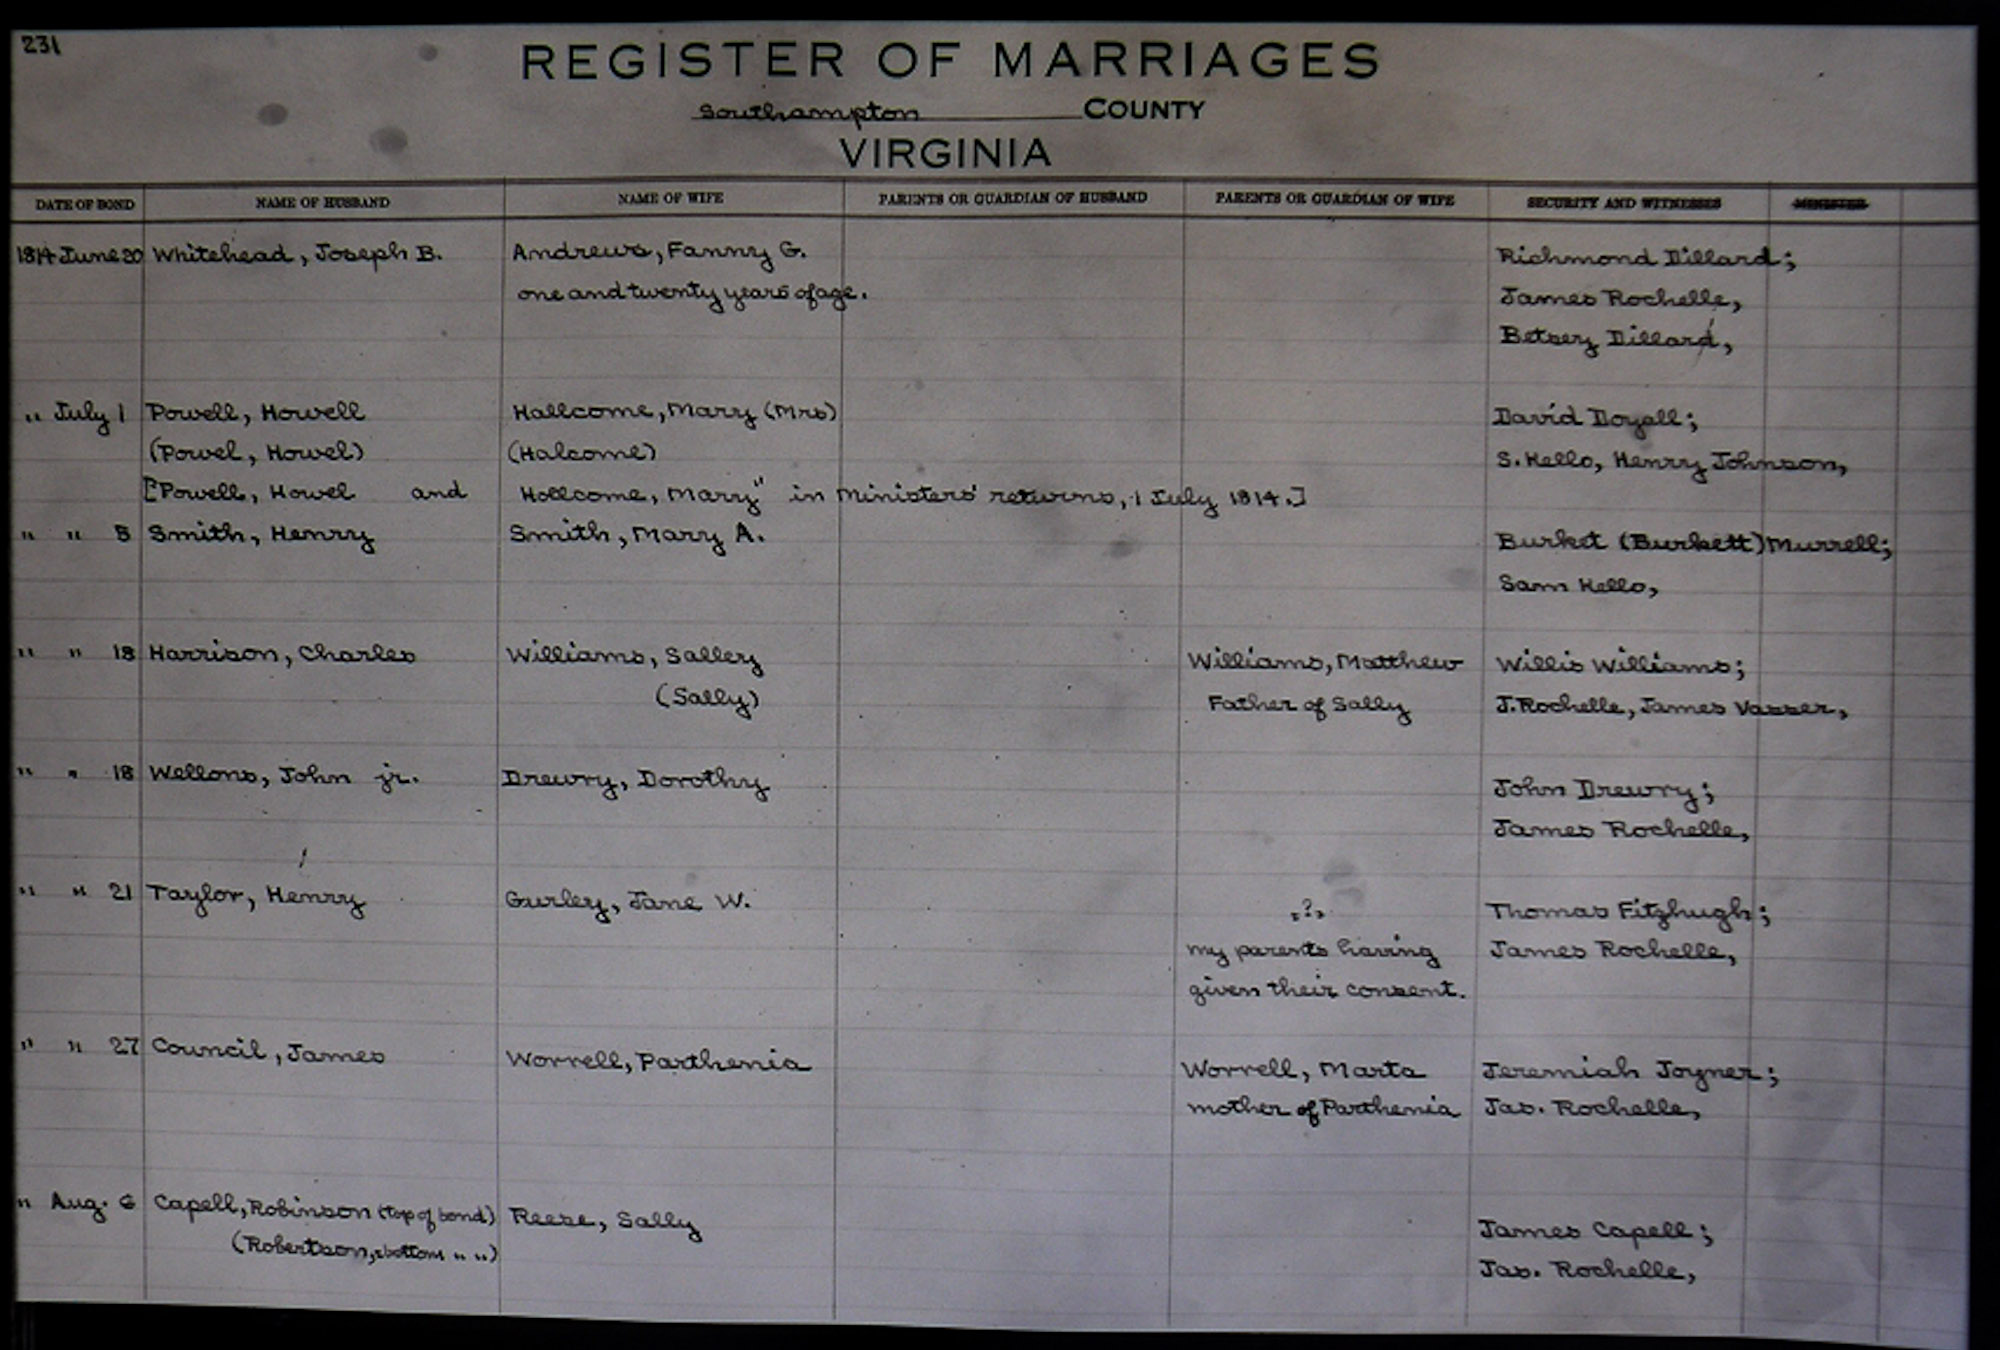 231
REGISTER OF MARRIAGES
Southampton COUNTY
VIRGINIA
DATE OF BOND NAME OF HUSBAND NAME OF WIFE PARENTS OR GUARDIAN OF HUSBAND PARENTS OR GUARDIAN OF WIFE SECURITY AND WITNESSES MINISTER
1814 June 20 Whitehead, Joseph B. Andrews, Fanny G. Richmond Dillard;
one and twenty years of age. James Rochelle,
Betsey Dillard,
" July 1 Powell, Howell Hallcome, Mary (Mrs) David Doyall;
(Powel, Howel) (Halcome) S. Kello, Henry Johnson,
["Powell, Howel and Hollcome, Mary" in Ministers' returns, 1 July 1814.]
" " 5 Smith, Henry Smith, Mary A. Burket (Burkett) Murrell;
Sam Kello,
" " 18 Harrison, Charles Williams, Sallery Williams, Matthew Willis Williams;
(Sally) Father of Sally J. Rochelle, James Vasser,
" " 18 Wellons, John jr. Drewry, Dorothy John Drewry;
James Rochelle,
" " 21 Taylor, Henry Gurley, Jane W. "?" Thomas Fitzhugh;
my parents having James Rochelle,
given their consent.
" " 27 Council, James Worrell, Parthenia Worrell, Marta Jeremiah Joyner;
mother of Parthenia Jas. Rochelle,
" Aug. 6 Capell, Robinson (top of bond) Reese, Sally James Capell;
(Robertson, bottom " ") Jas. Rochelle,